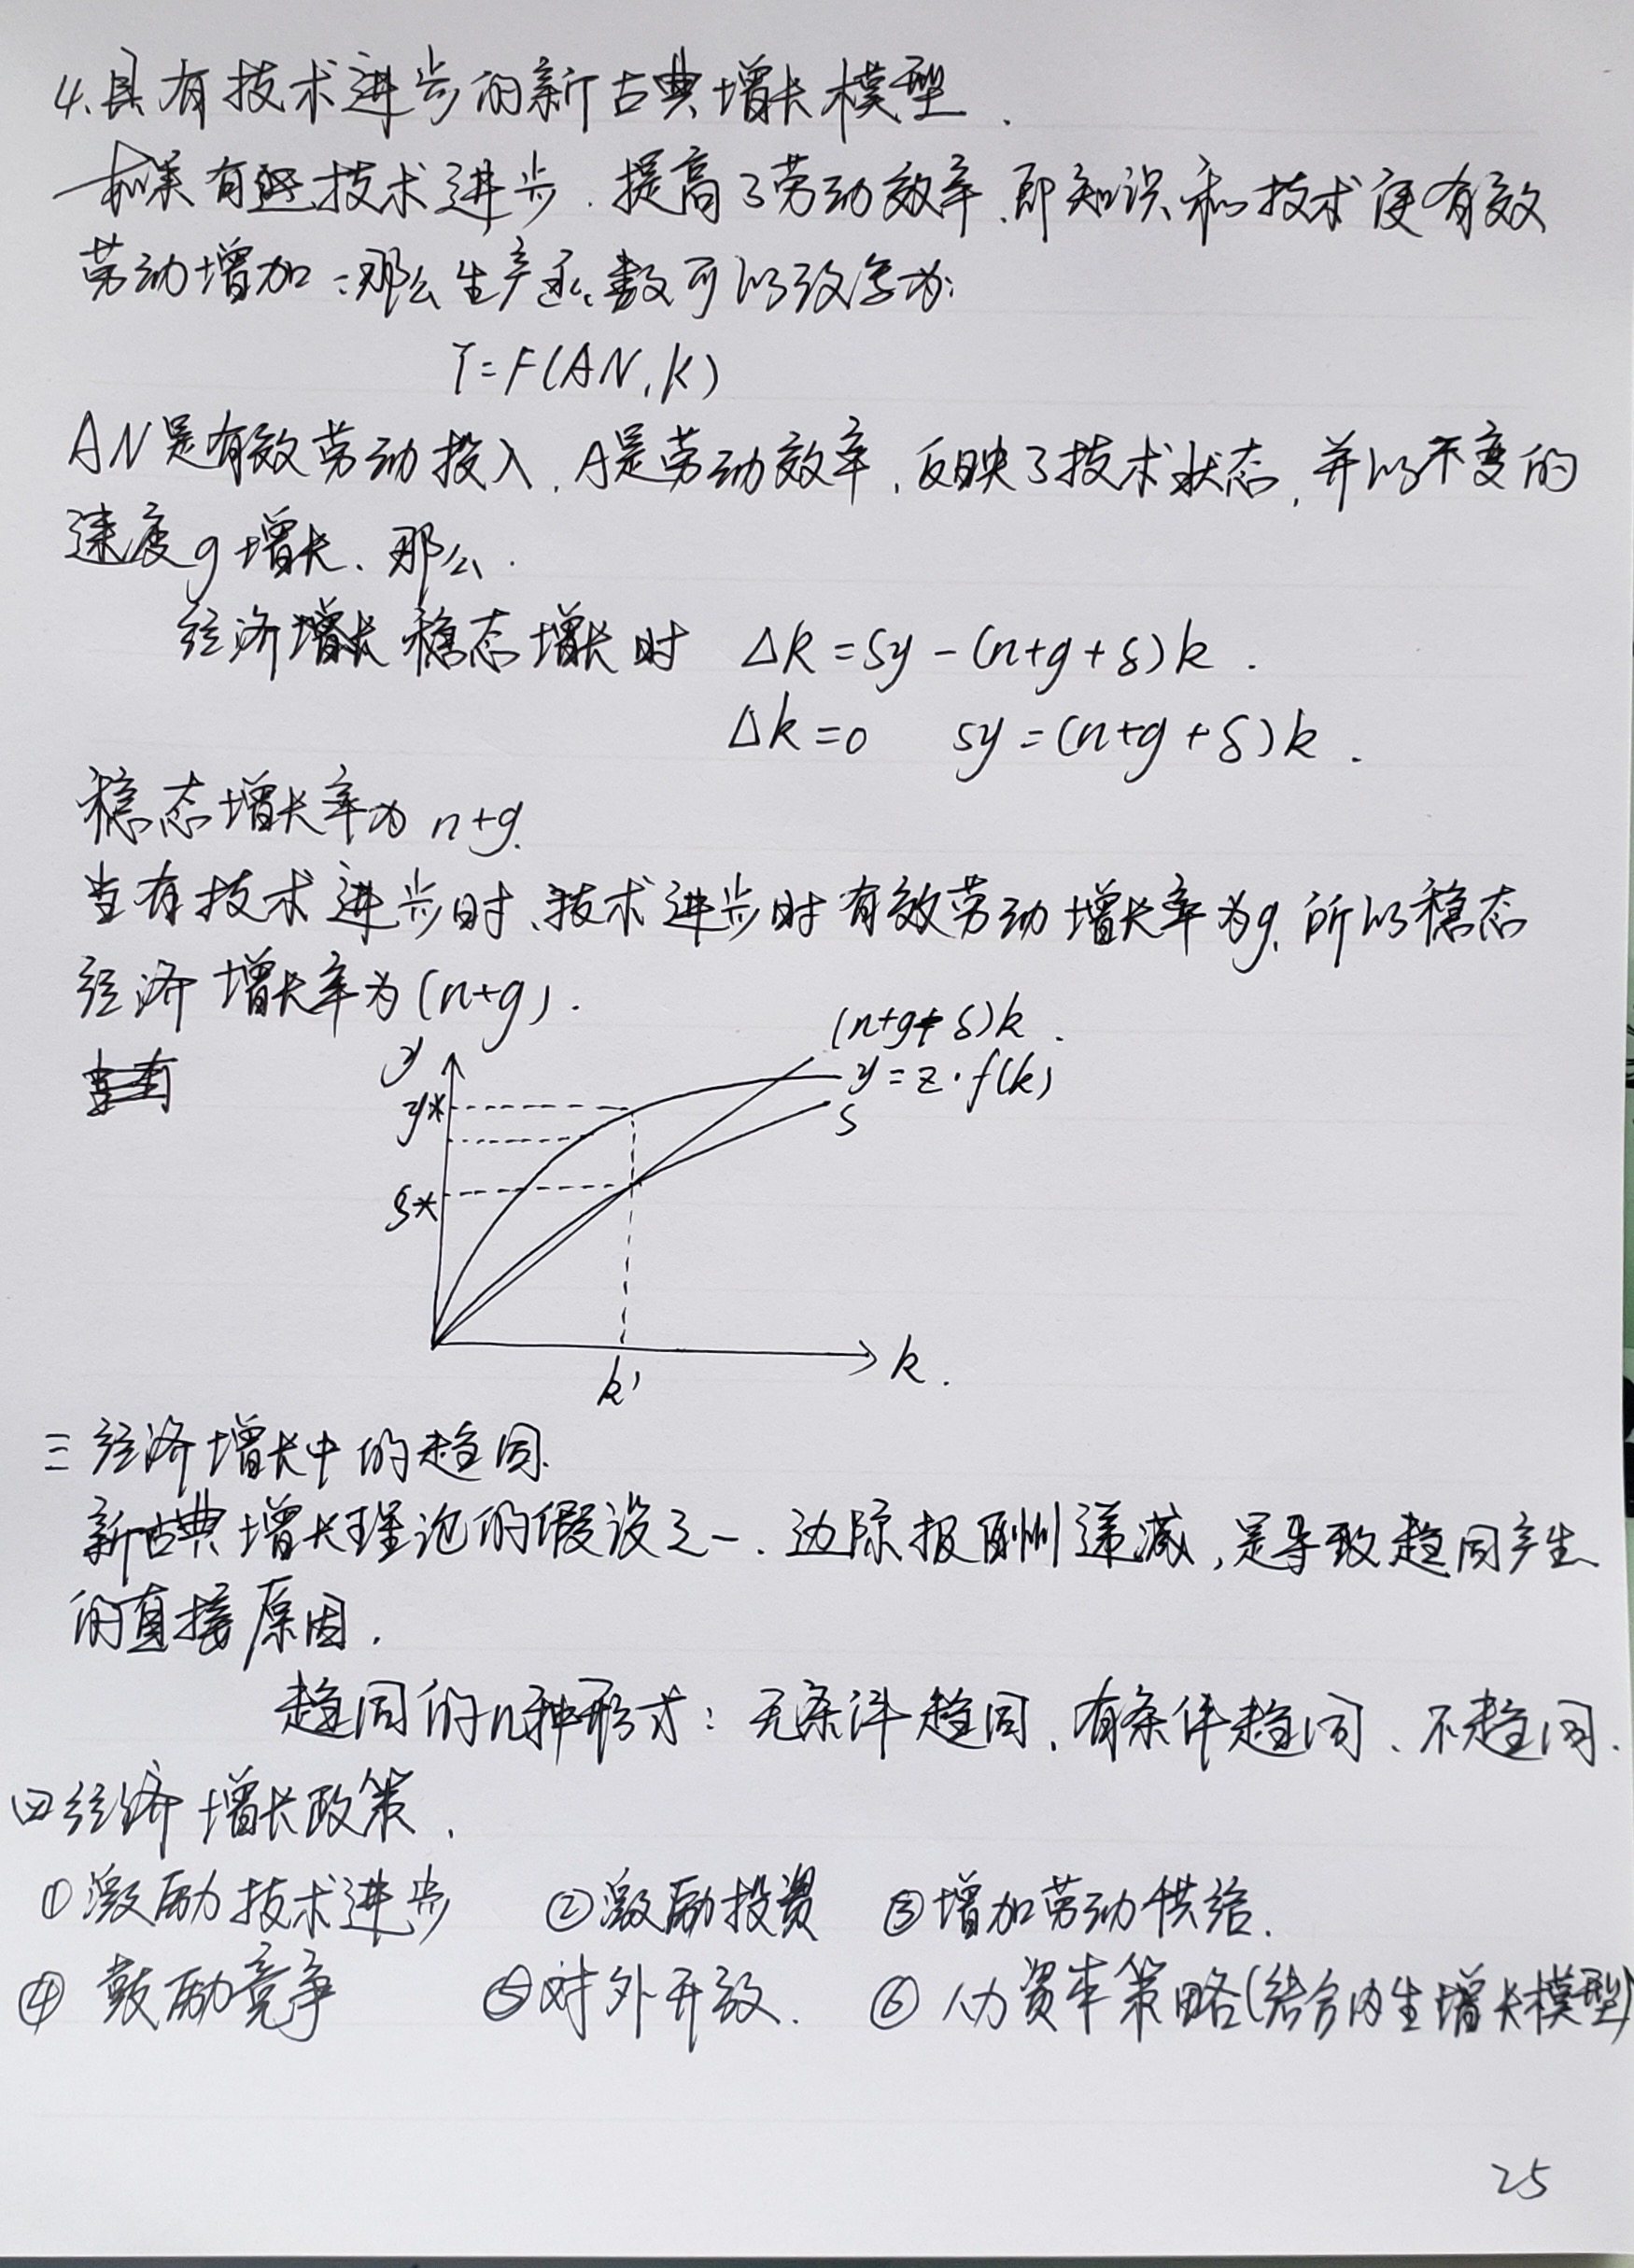 4.具有技术进步的新古典增长模型.
如果有 技术进步.提高了劳动效率.即知识和技术使有效
劳动增加:那么生产函数可以改写为:
Y=F(AN,K)
AN是有效劳动投入,A是劳动效率,反映了技术状态,并以不变的
速度g增长、那么.
经济增长稳态增长时 Δk=sy-(n+g+δ)k.
Δk=0 sy=(n+g+δ)k.
稳态增长率为n+g.
当有技术进步时、技术进步时有效劳动增长率为g,所以稳态
经济增长率为(n+g).
(n+g+δ)k.
y
y=z·f(k)
y*
s
s*
k
k'
三经济增长中的趋同.
新古典增长理论的假设之一.边际报酬递减,是导致趋同产生
的直接原因.
趋同的几种形式:无条件趋同、有条件趋同、不趋同.
四经济增长政策.
①激励技术进步 ②激励投资 ③增加劳动供给.
④鼓励竞争 ⑤对外开放. ⑥人力资本策略(结合内生增长模型)
25